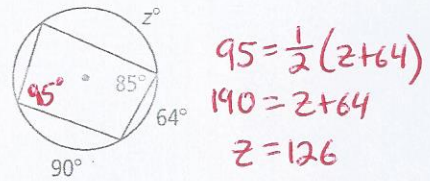 z°
95°
85°
64°
90°
95 = 1/2 (z+64)
190 = z+64
z = 126